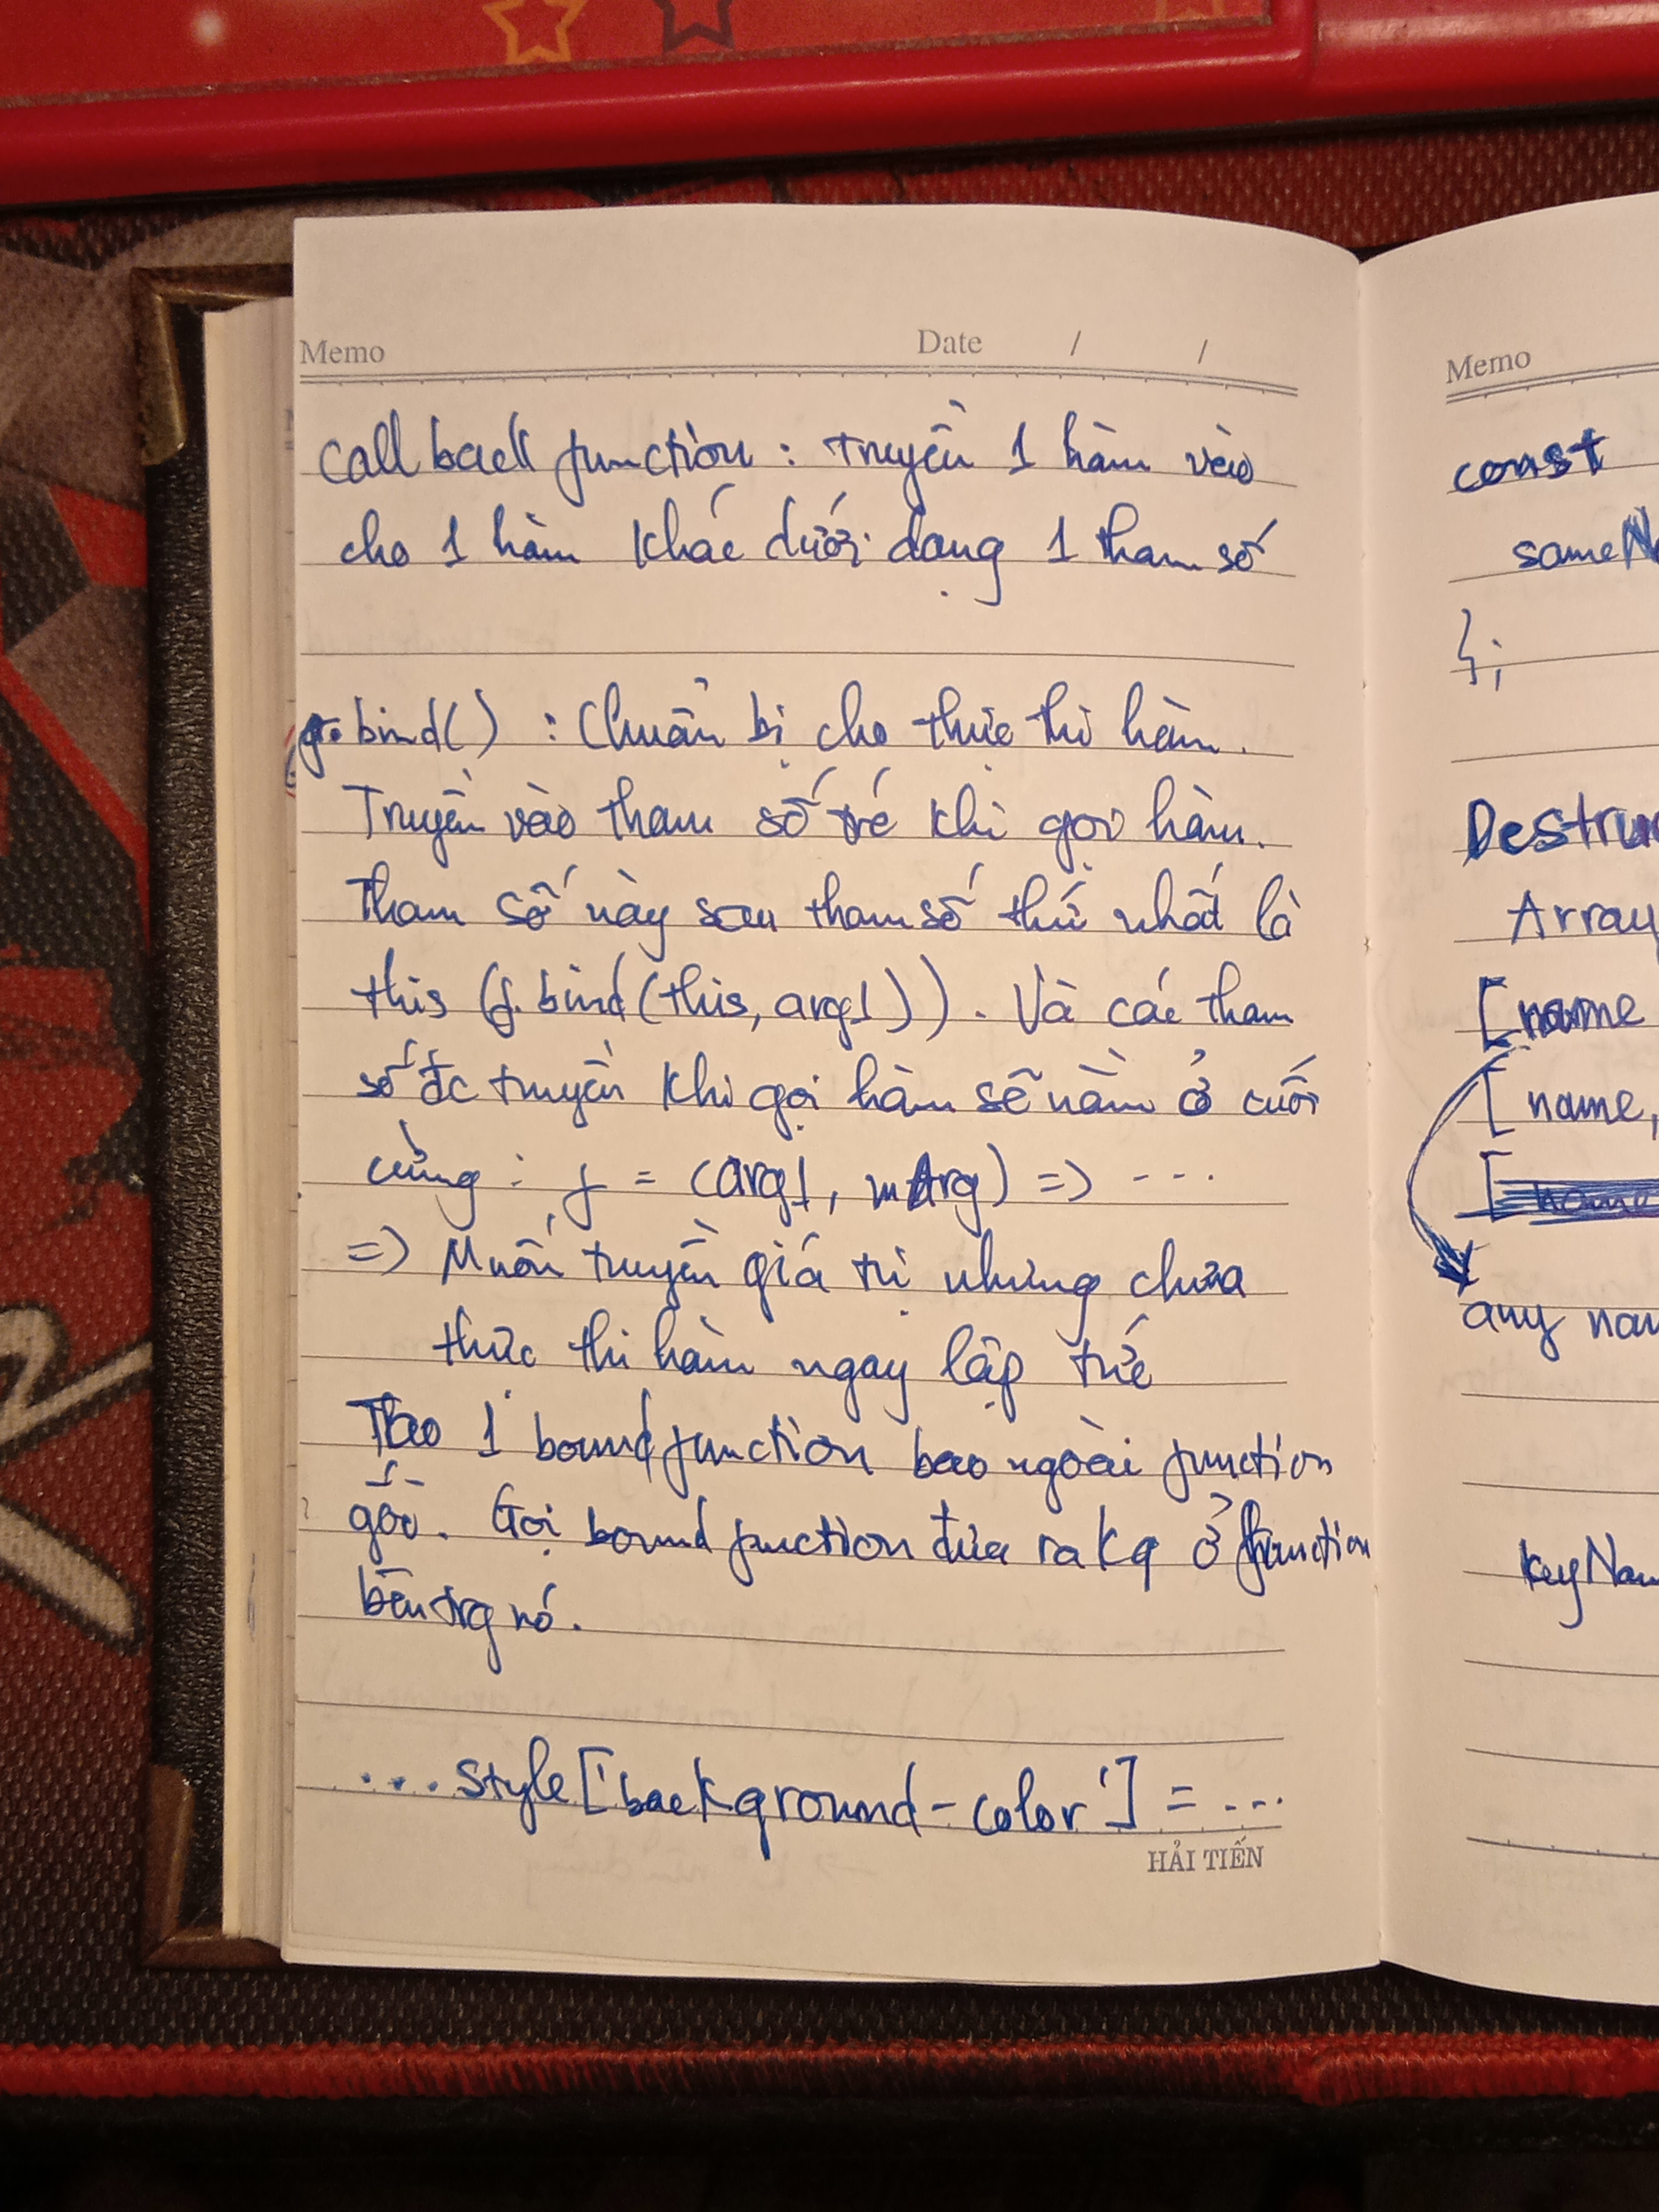 Memo Date / /
Callback function : truyền 1 hàm vào
cho 1 hàm khác dưới dạng 1 tham số
f.bind() : Chuẩn bị cho thực thi hàm.
Truyền vào tham số trc khi gọi hàm.
Tham số này sau tham số thứ nhất là
this (f.bind(this, arg1)). Và các tham
số đc truyền khi gọi hàm sẽ nằm ở cuối
cùng : f = (arg1, mArg) => ...
=> Muốn truyền giá trị nhưng chưa
thực thi hàm ngay lập tức
Tạo 1 bound function bao ngoài function
gốc. Gọi bound function đưa ra kq ở function
bên trg nó.
....style['background-color'] = ...
HẢI TIẾN
Memo
const
sameN
};
Destru
Array
[name
[name,
[name
any nam
keyNam